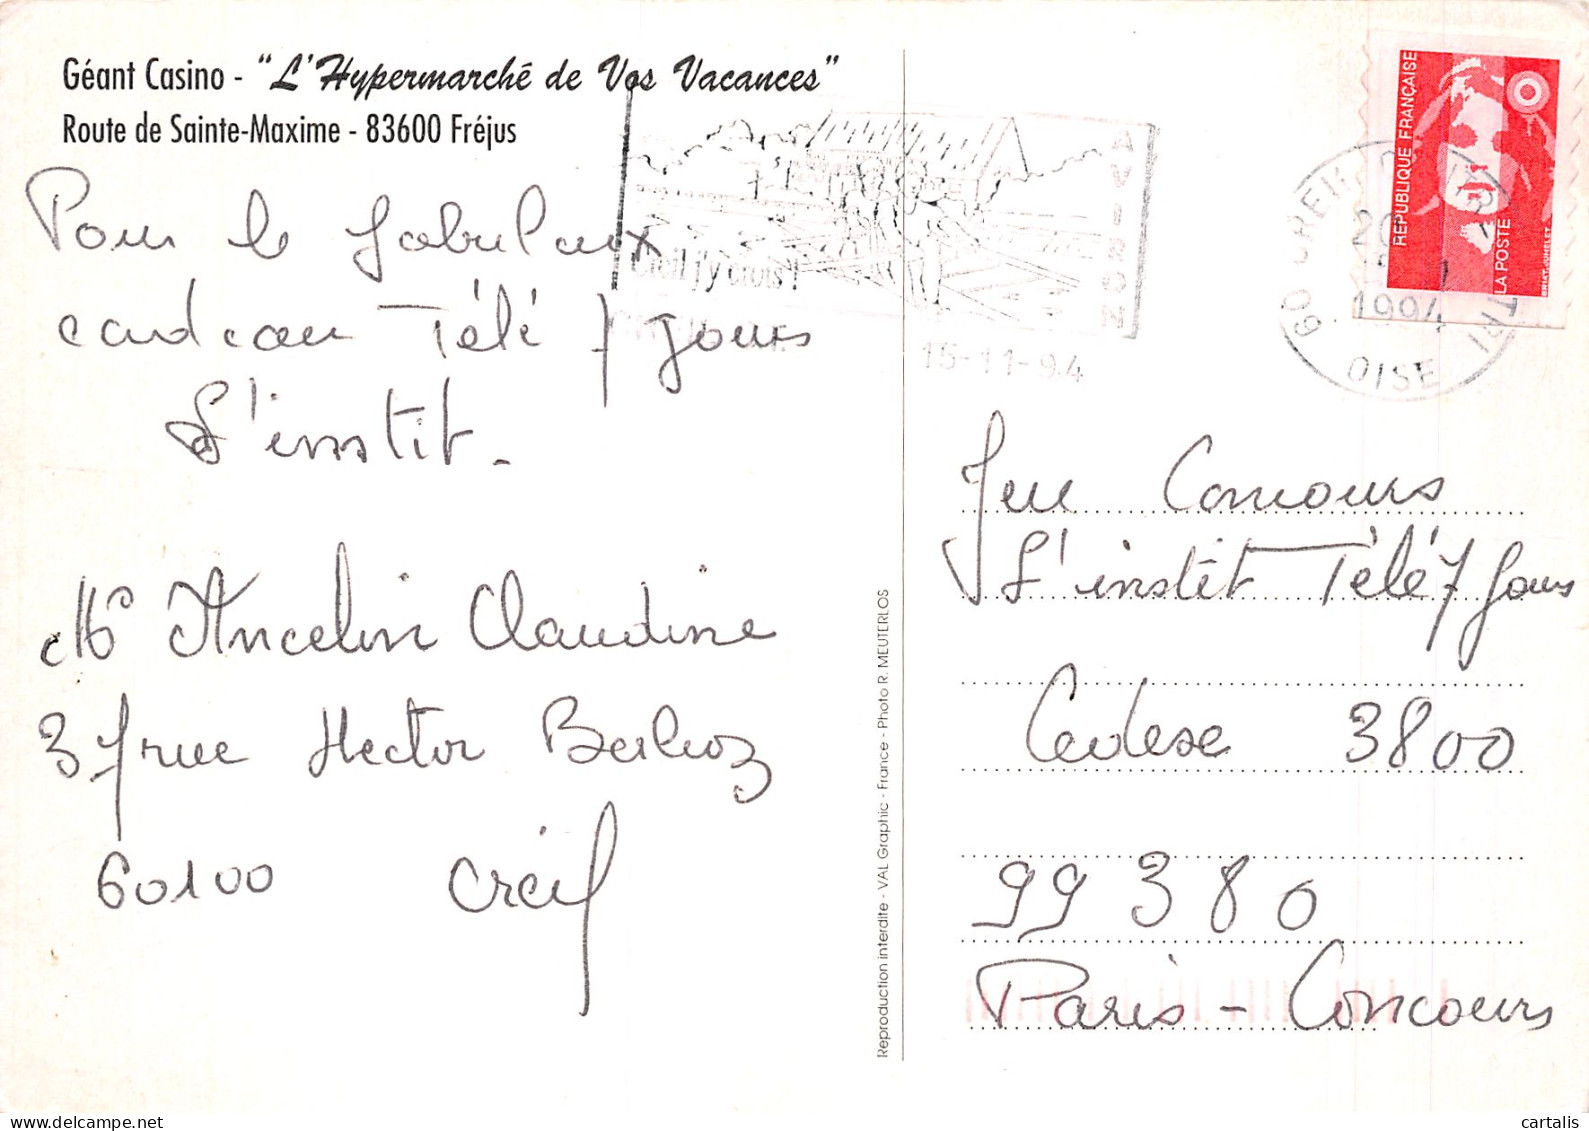 Géant Casino - "L'Hypermarché de Vos Vacances"
Route de Sainte-Maxime - 83600 Fréjus
Pour le fabuleux
cadeau Télé 7 Jours
L'instit.
Ancelin Claudine
3 rue Hector Berlioz
60100 Creil
Reproduction interdite - VAL Graphic - France - Photo R. MEUTERLOS
Creil j'y crois !
AVIRON
15-11-94
60 CREIL
1994
OISE
REPUBLIQUE FRANÇAISE
LA POSTE
Jeu Concours
L'instit Télé 7 Jours
Cedese 3800
99 380
Paris - Concours
cartalis